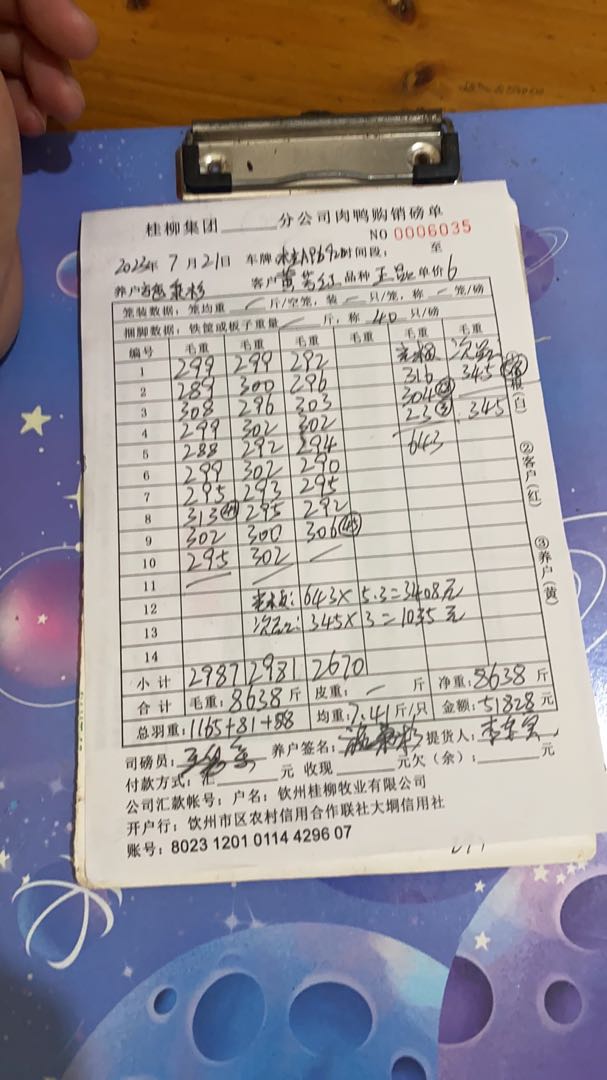 桂柳集团______分公司肉鸭购销磅单
NO 0006035
2023年 7 月 21日 车牌 时间段: 至
养户 客户 品种 正品 单价 6
笼装数据: 笼均重 — 斤/空笼, 装 — 只/笼, 称 — 笼/磅
捆脚数据: 铁筐或板子重量 — 斤, 称 40 只/磅
编号 毛重 毛重 毛重 毛重 毛重 毛重
1 299 299 292 次品
2 289 300 296 316 345
3 308 296 303 304
4 299 302 302 23 ③ 345
5 288 292 294 643
6 299 302 290
7 295 293 295
8 313 295 292
9 302 300 306 45
10 295 302 —
11 — — —
12 643×5.3=3408元
13 次品: 345×3=1035元
14
小计 2987 2981 2670
合计 毛重: 8638 斤 皮重: — 斤 净重: 8638 斤
总羽重: 1165+81+88 均重: 7.41 斤/只 金额: 51828 元
司磅员: 养户签名: 提货人:
付款方式: 汇______元 收现______元欠(余):______元
公司汇款帐号: 户名: 钦州桂柳牧业有限公司
开户行: 钦州市区农村信用合作联社大垌信用社
账号: 8023 1201 0114 4296 07
根(白)
②客户(红)
③养户(黄)